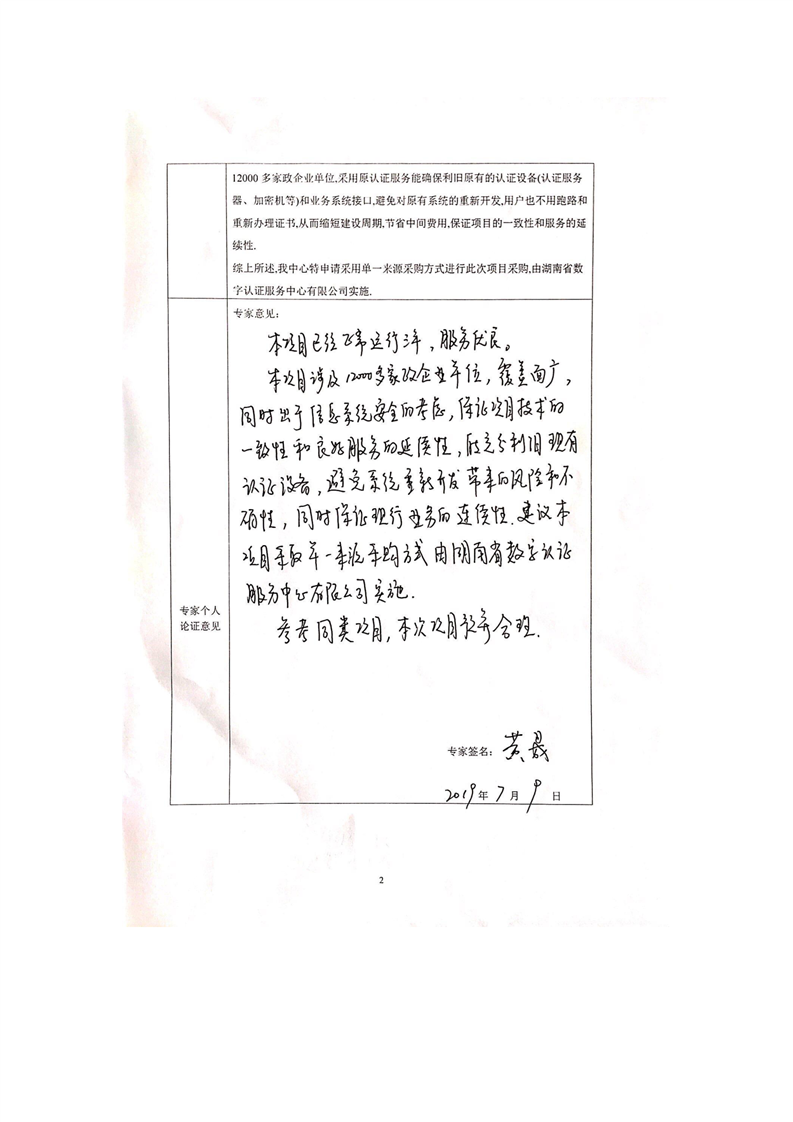 12000 多家政企业单位,采用原认证服务能确保利旧原有的认证设备(认证服务
器、加密机等)和业务系统接口,避免对原有系统的重新开发,用户也不用跑路和
重新办理证书,从而缩短建设周期,节省中间费用,保证项目的一致性和服务的延
续性.
综上所述,我中心特申请采用单一来源采购方式进行此次项目采购,由湖南省数
字认证服务中心有限公司实施.
专家个人
论证意见
专家意见:
本项目已经正常运行三年,服务优良。
本项目涉及12000多家政企业单位,覆盖面广,
同时出于信息系统安全的考虑,保证项目技术的
一致性和良好服务的延续性,能充分利旧现有
认证设备,避免系统重新开发带来的风险和不
确性,同时保证现行业务的连续性.建议本
项目采取单一来源采购方式由湖南省数字认证
服务中心有限公司实施.
参考同类项目,本次项目预算合理.
专家签名: 黄晟
2019 年 7 月 9 日
2